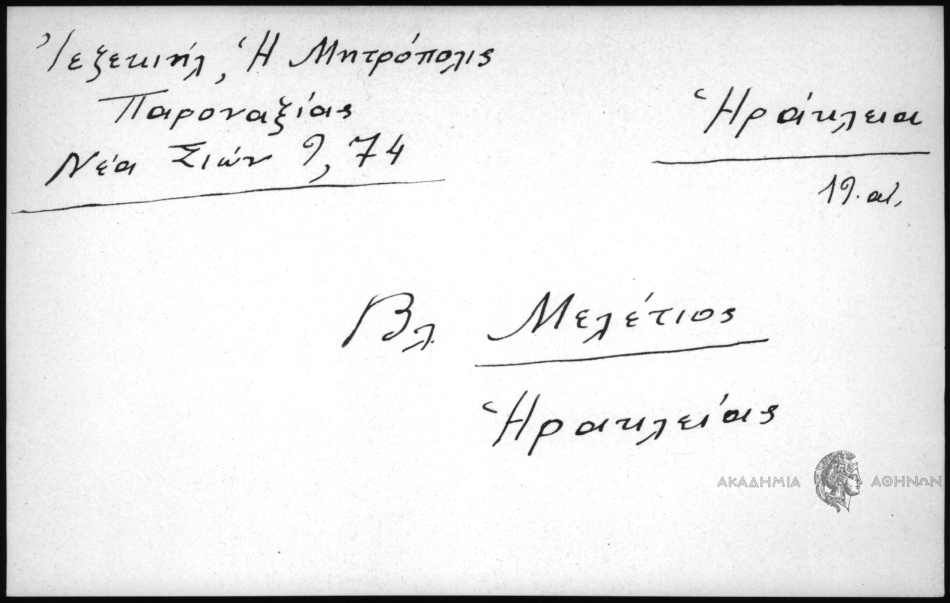 Ἰεζεκιήλ, Ἡ Μητρόπολις
Παροναξίας
Νέα Σιών 9, 74
Ἡράκλεια
19. αἰ.
Βλ. Μελέτιος
Ἡρακλείας
ΑΚΑΔΗΜΙΑ ΑΘΗΝΩΝ